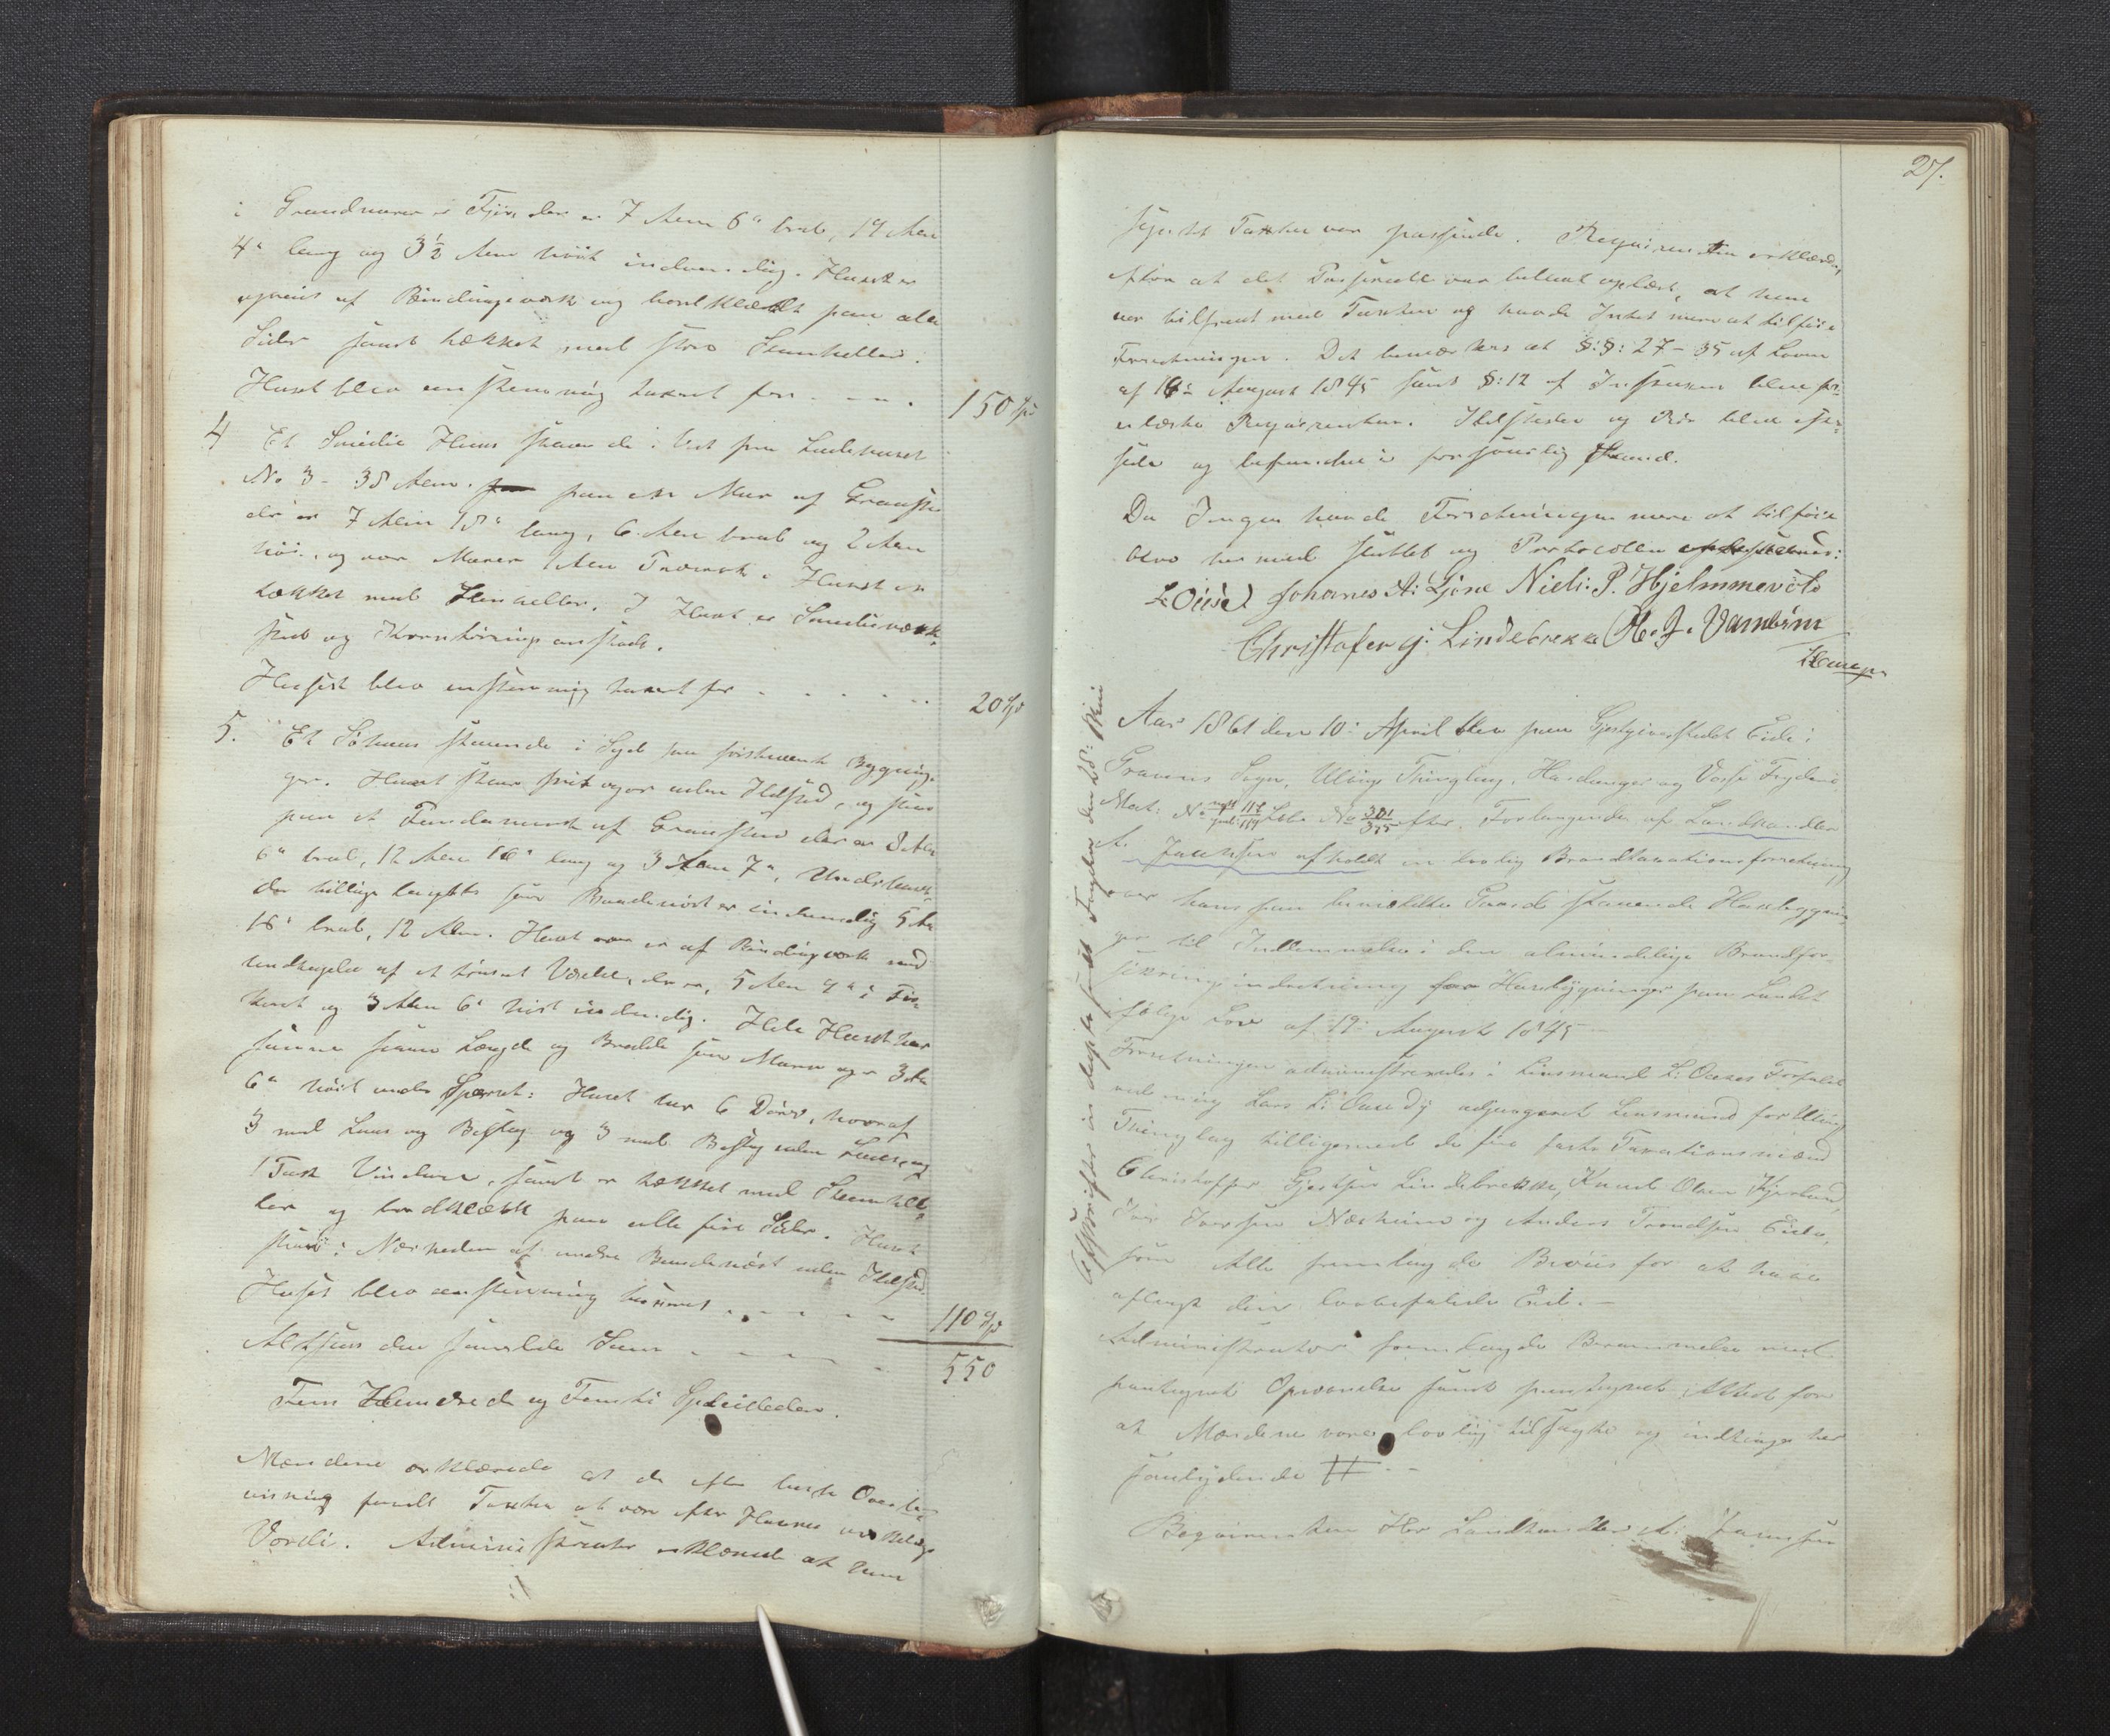 i Grundmuren er Fjøs, der er 7 Alen 6" bred, 19 Alen
4" lang og 3½ Alen høit indvendig. Huset er
opreist af Bindingsværk og bordklædt paa alle
Sider samt tækket med Steenheller.
Huset blev eenstemmig taxeret for - - - . 150 Spd
4 Et Smedie Huus staaende i Vest fra Ladehuset
No 3 - 38 Alen. paa en Mur af Graasteen
der er 7 Alen 18" lang, 6 Alen bred og 2 Alen
høi, og var Muren 1 Alen Huset er
tækket med Heller. I Huset er Smedieværk-
sted og Korntørringsanstalt.
Huset blev eenstemmig taxeret for - - - - - - 20 Spd
5. Et Søhuus staaende i Syd fra sidstnævnte Bygnin-
ger. Huset staar frit og er uden Ildsted, og staar
paa et Fundament af Graasteen der er 8 Alen
6" bred, 12 Alen 16" lang og 3 Alen 7"
der tillige benyttes som Baadenøst er indvendig 5 Alen
16" bred, 12 Alen. Huset er af Bindingsværk med
Undtagelse af et tømret Værelse, der er, 5 Alen 9" i Fir-
kant og 3 Alen 6" høit indvendig. Hele Huset har
samme Længde og Bredde som Muren og er 3 Alen
6" høit under Sperret: Huset har 6 Døre, hvoraf
3 med Laas og Beslag og 3 med Beslag uden Laas, og
1 Fag Vinduer, samt er tækket med Steenhel-
ler og bordklædt paa alle fire Sider. Huset
staaer i Nærheden af andre Baadenøst uden Ildsted.
Huset blev eenstemmig taxeret . - - - - - 110 Spd
Altsaa den samlede Sum - - - - - . 550
Fem Hundrede og Femti Speciedaler.
Mændene erklærede at de efter bedste Overbe-
viisning fandt Taxten at være efter Husenes virkelige
Værdi. Administrator erklærede at han
27.
synes Taxten var passende. Reqvirenten erklærede,
efter at det Passerede var bleven oplæst, at han
var tilfreds med Taxten og havde Intet mere at tilføie
Forretningen. Det bemærkes at §:§: 27 - 35 af Loven
af 19de August 1845 samt §: 12 af Instruxen blev fo-
relæste Reqvirenten. Ildsteder og Rør blev efter-
sete og befundne i forsvarlig Stand.
Da Ingen havde Forretningen mere at tilføie
blev hermed sluttet og Protocollen
L Ouse Johanes A: Gjøne Niels: P. Hjelmmevold
Christofer g: Lindebrekke O. J. Vambeim
Aar 1861 den 10: April blev paa Gjestgiverstedet Eide i
Gravens Sogn, Ulviks Thinglag, Hardanger og Voss Fogderie
Mat: No nytt 117 Løbe No 301 efter Forlangende af Landhandler
A. Jansen afholdt en lovlig Brandtaxationsforretning
over hans paa bemeldte Gaard staaende Huusbygnin-
ger til Indlemmelse i den almindelige Brandfor-
sikringsindretning for Huusbygninger paa Landet
ifølge Lov af 19: August 1845
Forretningen administreredes i Lensmand L: Ouses Forfald
ved mig Lars L: Ouse Dÿ adjungeret Lensmand for Ulviks
Thinglag tilligemed de fire faste Taxationsmænd
Christoffer Gjertsen Lindebrekke, Knud Olsen Kjerland,
Iver Iversen Næsheim og Anders Trondsen Eide,
som Alle fremlagde Beviis for at have
aflagt den lovbefalede Eed. -
Administrator fremlagde Berammelse med
paategnet Opnævnelse samt paategnet Attest for
at Mændene vare lovlig tilsagte og indtages her
saalydende #
Reqvirenten Hr Landhandler A: Jansen
Afskriften indsendt Fogden den 28: Mai